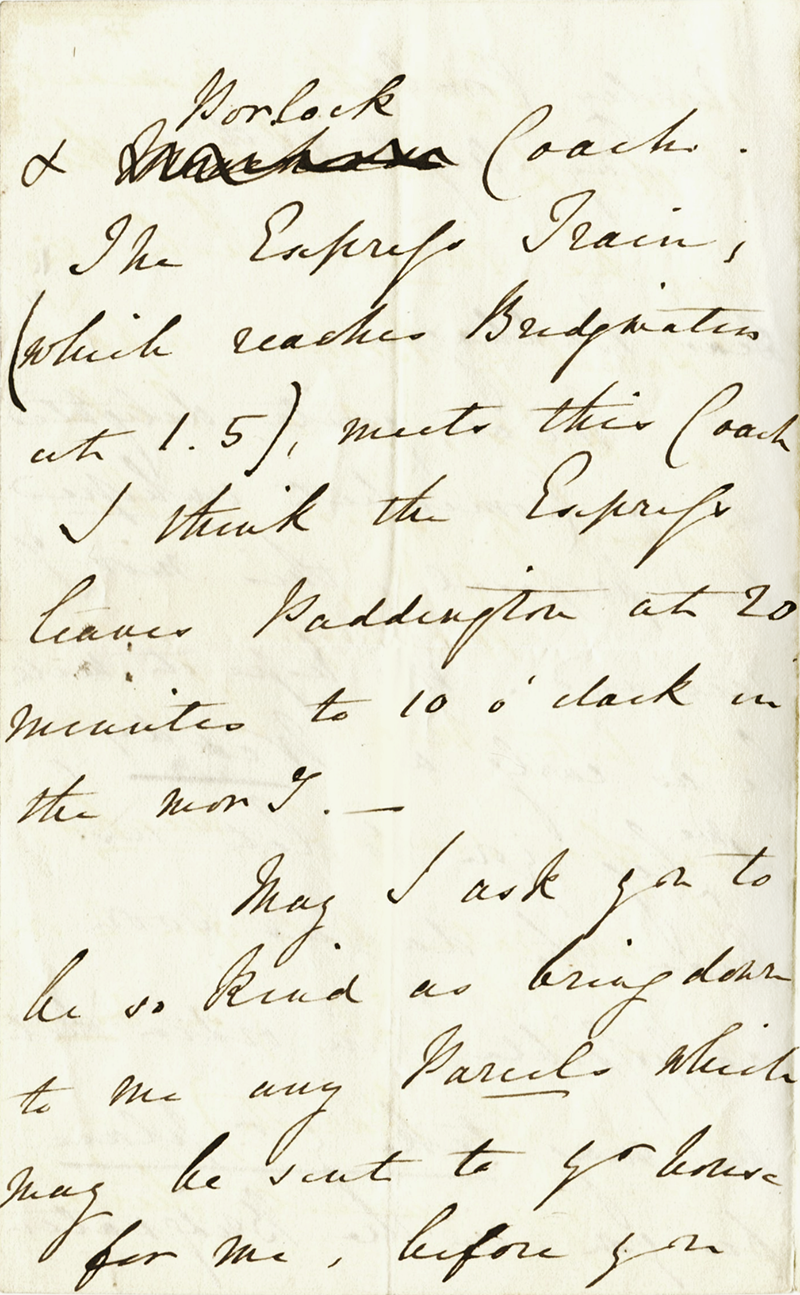 Porlock
& Coach.
The Express Train,
(which reaches Bridgwater
at 1.5), meets this Coach
I think the Express
leaves Paddington at 20
minutes to 10 o'clock in
the morg. —
May I ask you to
be so kind as bring down
to me any Parcels which
may be sent to yr house
for me, before you